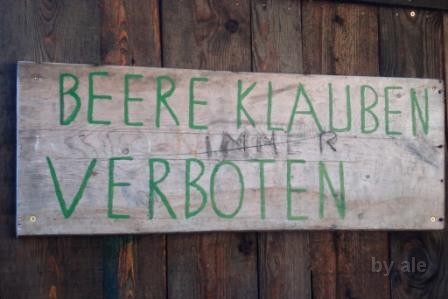 BEERE KLAUBEN
IMMER
VERBOTEN
by ale